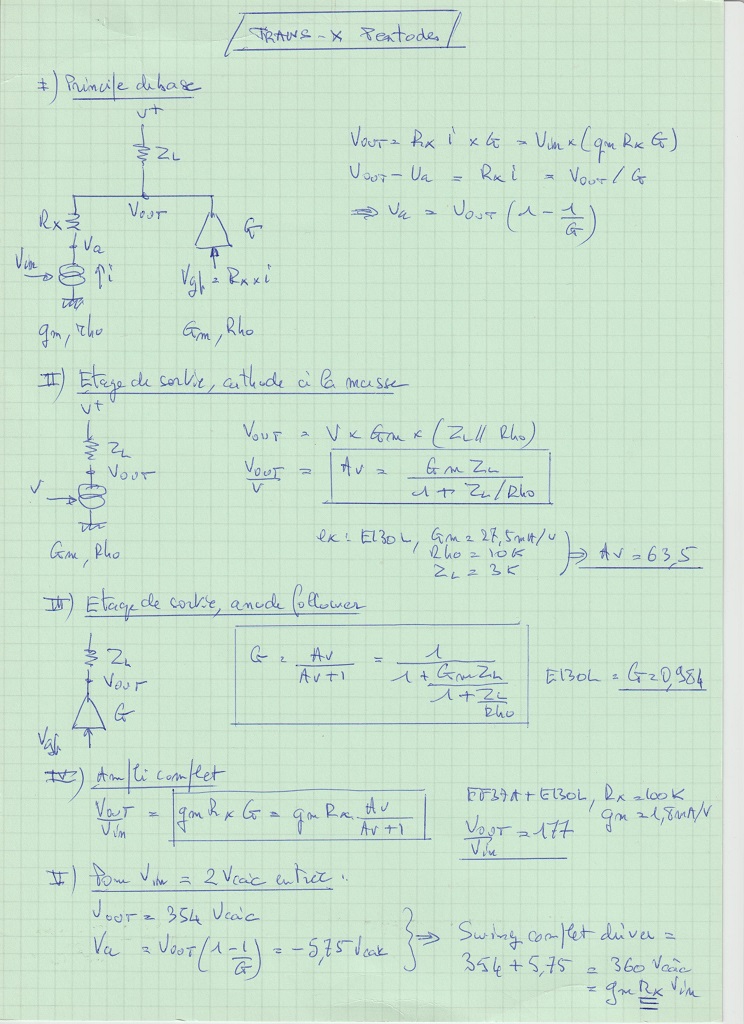 TRANS-X Pentodes
I) Principe de base
V+
ZL
VOUT
Rx
Va
G
Vin
i
Vgk = Rx x i
gm, rho
Gm, Rho
VOUT = Rx i x G = Vin x (gm Rx G)
VOUT - Va = Rx i = VOUT / G
⇒ Va = VOUT (1 - 1/G)
II) Etage de sortie, cathode à la masse
V+
ZL
VOUT
V
Gm, Rho
VOUT = V x Gm x (ZL // Rho)
VOUT/V = Av = Gm ZL / (1 + ZL/Rho)
ex: E130L, Gm = 27,5mA/V
Rho = 10K
ZL = 3K
⇒ Av = 63,5
III) Etage de sortie, anode follower
ZL
VOUT
G
Vgk
G = Av/(Av+1) = 1/(1 + Gm ZL/(1 + ZL/Rho))
E130L = G = 0,984
IV) Ampli complet
VOUT/Vin = gm Rx G = gm Rx Av/(Av+1)
EF37A + E130L, Rx = 100K
gm = 1,8mA/V
VOUT/Vin = 177
V) Pour Vin = 2 Vcàc entrée :
VOUT = 354 Vcàc
Va = VOUT (1 - 1/G) = -5,75 Vcàc
⇒ Swing complet driver =
354 + 5,75 = 360 Vcàc
= gm Rx Vin